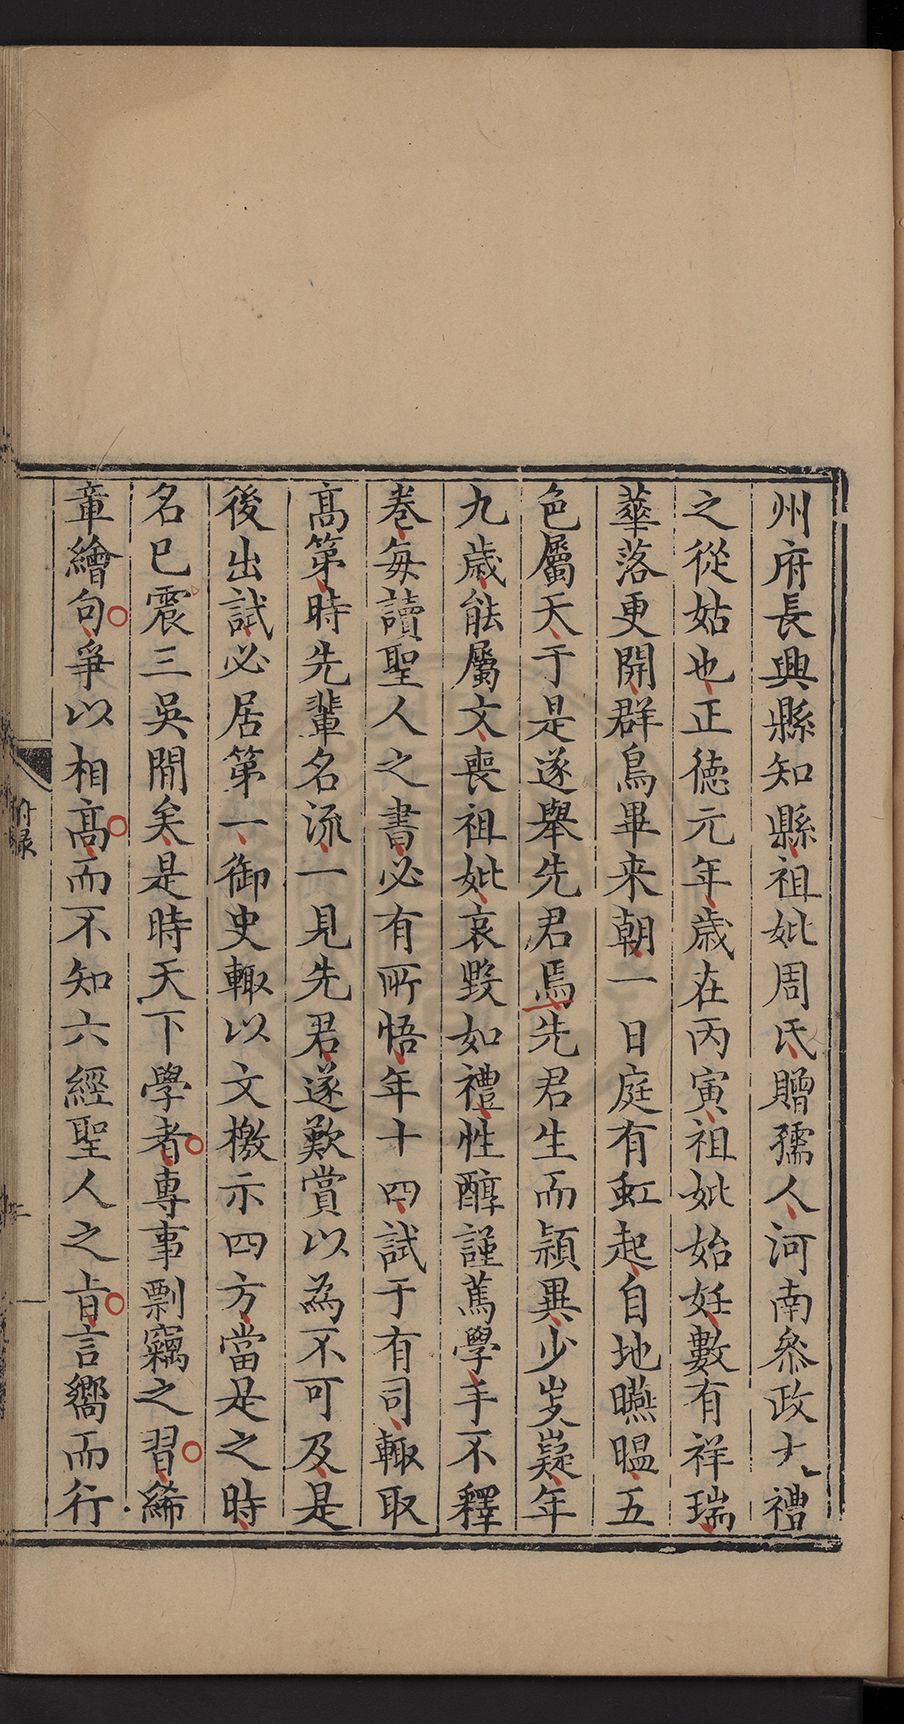 州府長興縣知縣祖妣周氏贈孺人河南叅政大禮
之從姑也正徳元年歳在丙寅祖妣始妊數有祥瑞
蕐落更開群鳥畢来朝一日庭有虹起自地曣㬈五
色屬天于是遂舉先君焉先君生而頴異少岐嶷年
九歳能屬文喪祖妣哀毀如禮性醇謹篤學手不釋
巻每讀聖人之書必有所悟年十四試于有司輙取
髙第時先輩名流一見先君遂歎賞以為不可及是
後出試必居第一御史輙以文檄示四方當是之時
名已震三吳間矣是時天下學者專事剽竊之習絺
章繪句爭以相髙而不知六經聖人之㫖言嚮而行
附録
二